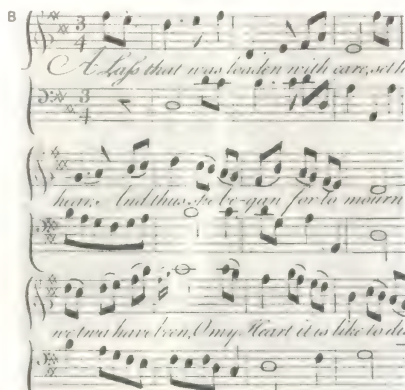 B
3 4
A Lass that was loaden with care, set
3 4
hear, And thus she be-gan for to mourn
we twa have been, O my Heart it is like to